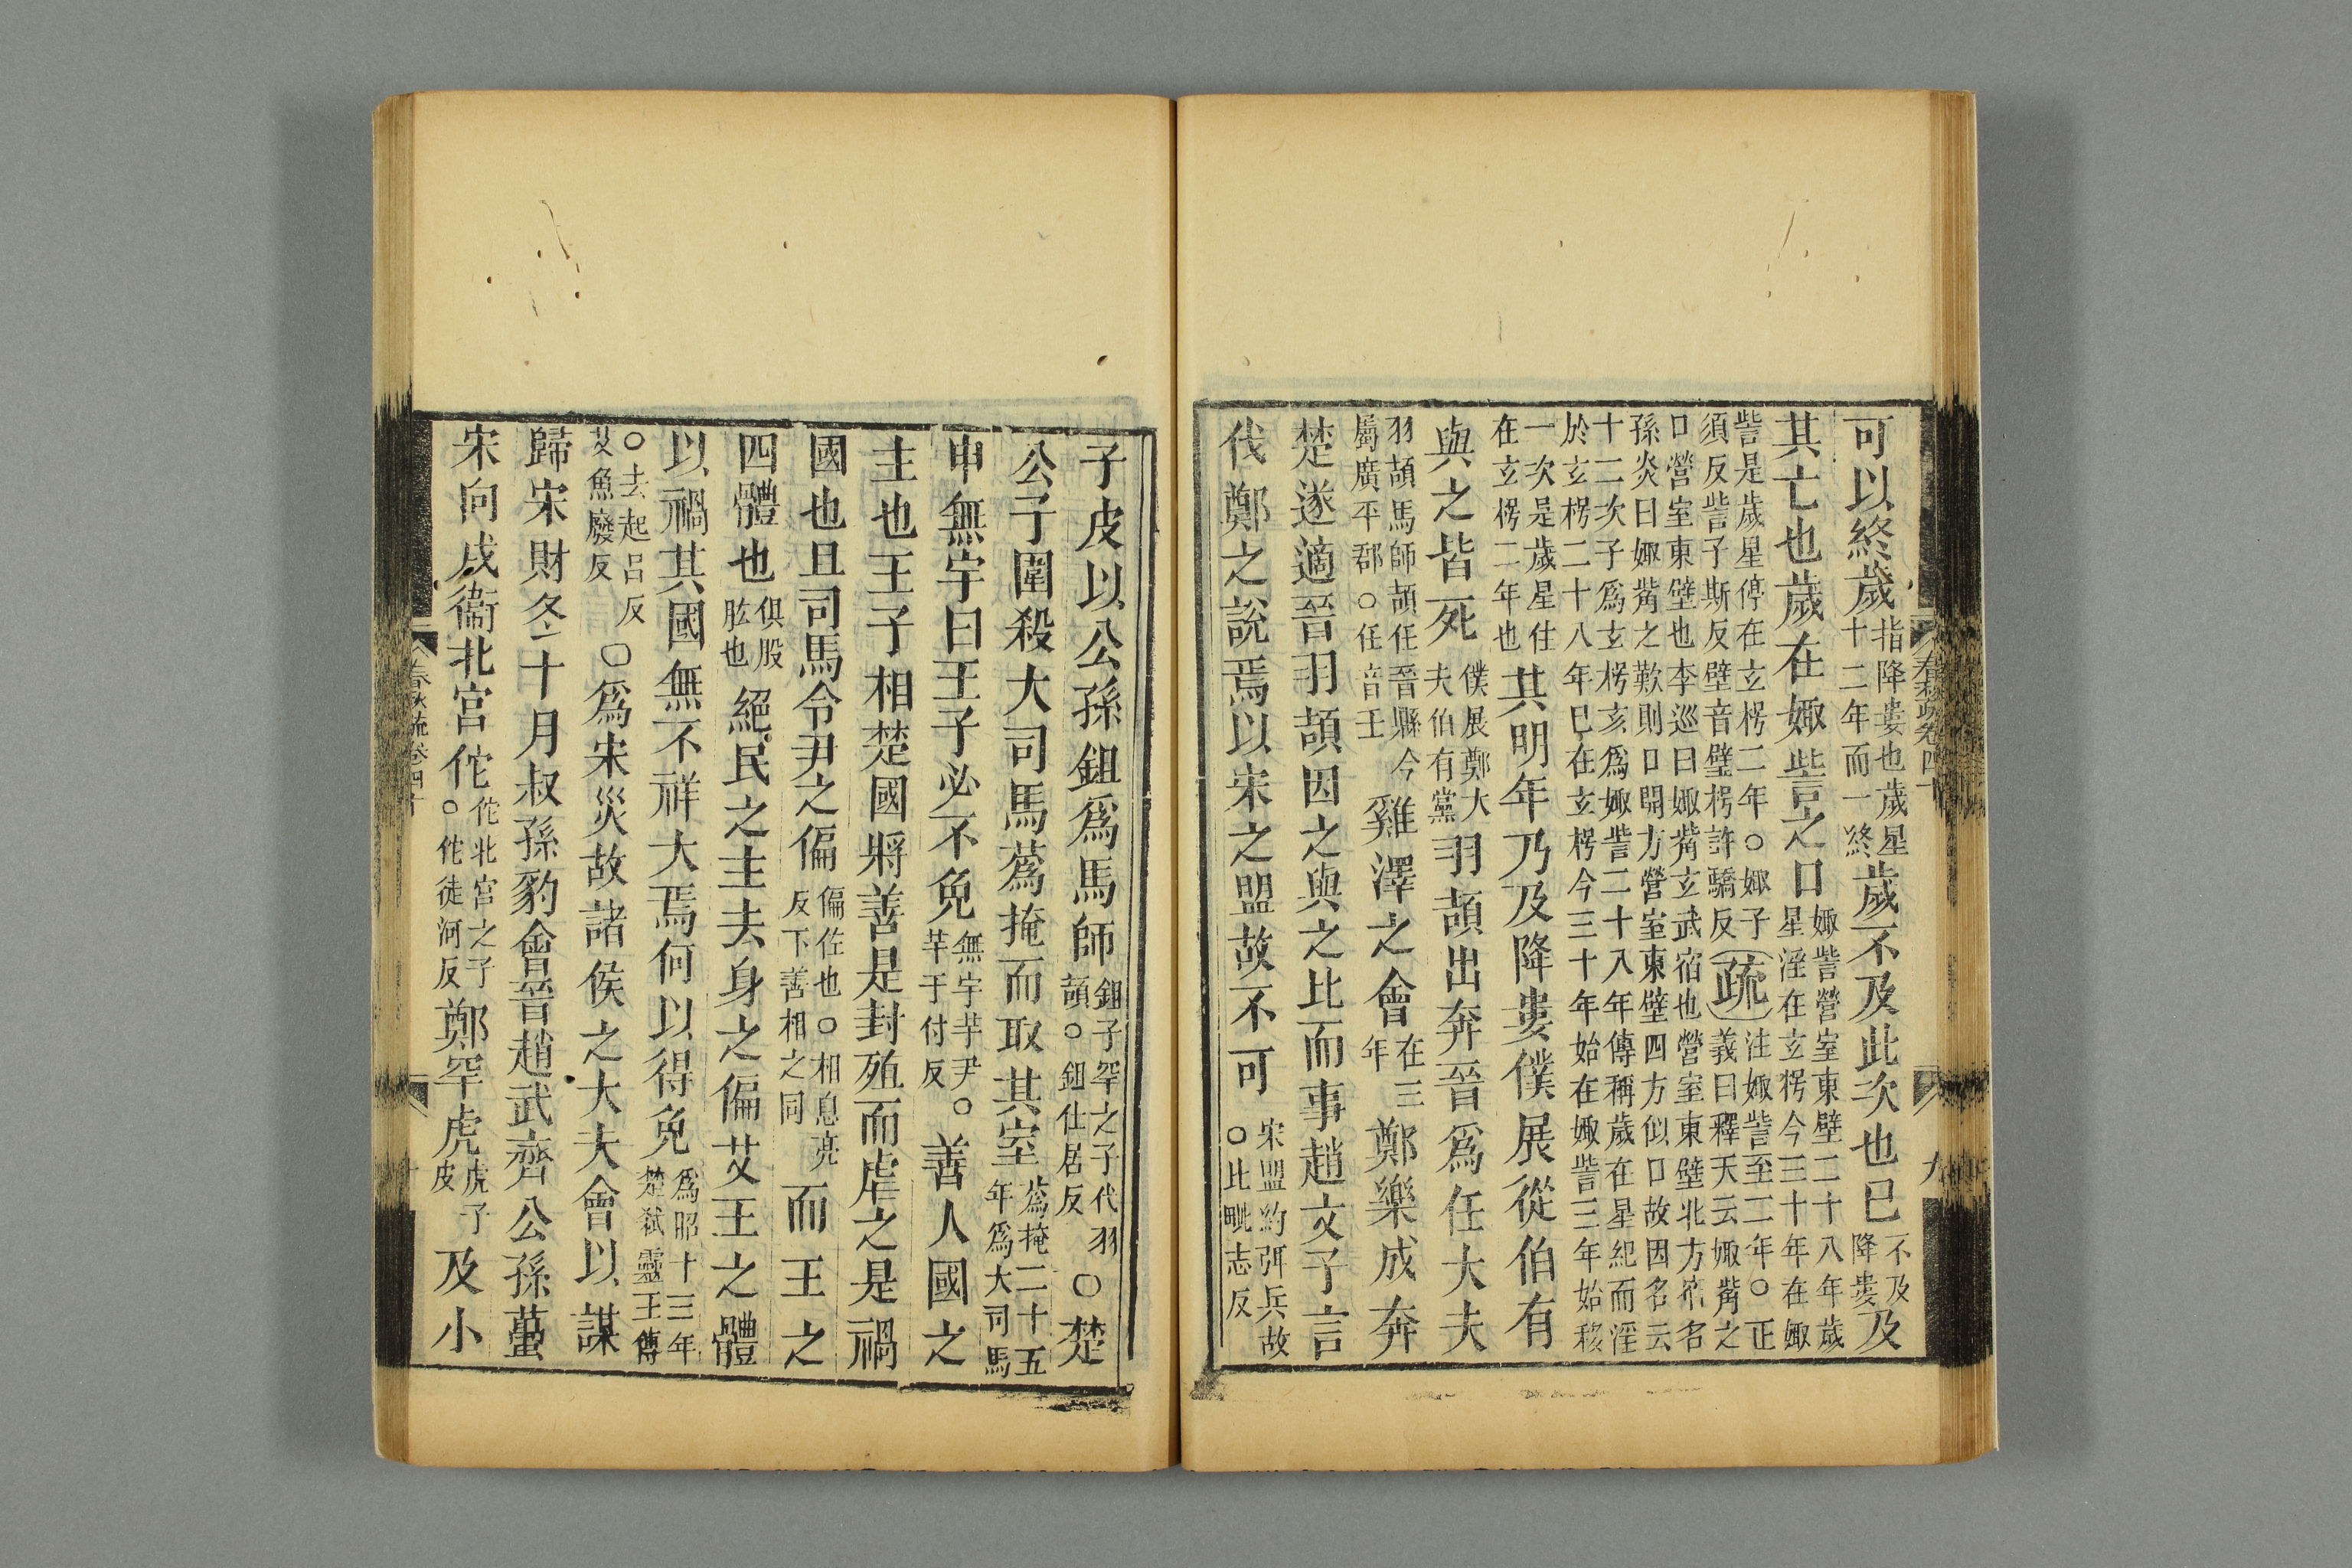 可以終歲指降婁也歲星十二年而一終歲不及此次也巳不及降婁及
其亡也歲在娵訾之口娵訾營室東壁二十八年歲星淫在玄枵今三十年在娵
訾是歲星停在玄枵二年○娵子須反訾子斯反壁音璧枵許驕反疏注娵訾至二年○正義曰釋天云娵觜之
口營室東壁也李巡曰娵觜玄武宿也營室東壁北方宿名孫炎曰娵觜之歎則口開方營室東壁四方似口故因名云
十二次子爲玄枵亥爲娵訾二十八年傳稱歲在星紀而淫於玄枵二十八年巳在玄枵今三十年始在娵訾三年始移
一次是歲星住在玄枵二年也其明年乃及降婁僕展從伯有
與之皆死僕展鄭大夫伯有黨羽頡出奔晉爲任大夫
羽頡馬師頡任晉縣今屬廣平郡○任音壬雞澤之會在三年鄭樂成奔
楚遂適晉羽頡因之與之比而事趙文子言
伐鄭之說焉以宋之盟故不可宋盟約弭兵故○比毗志反
春秋疏卷四十
九
子皮以公孫鉏爲馬師鉏子罕之子代羽頡○鉏仕居反○楚
公子圍殺大司馬蒍掩而取其室蒍掩二十五年爲大司馬
申無宇曰王子必不免無宇芋尹○芋于付反善人國之
主也王子相楚國將善是封殖而虐之是禍
國也且司馬令尹之偏偏佐也○相息亮反下善相之同而王之
四體也俱股肱也絕民之主去身之偏艾王之體
以禍其國無不祥大焉何以得免爲昭十三年楚弒靈王傳
○去起呂反艾魚廢反○爲宋災故諸侯之大夫會以謀
歸宋財冬十月叔孫豹會晉趙武齊公孫蠆
宋向戌衞北宮佗佗北宮之子○佗徒河反鄭罕虎虎子皮及小
春秋疏卷四十